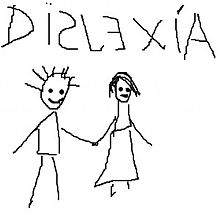 DISLEXÍA